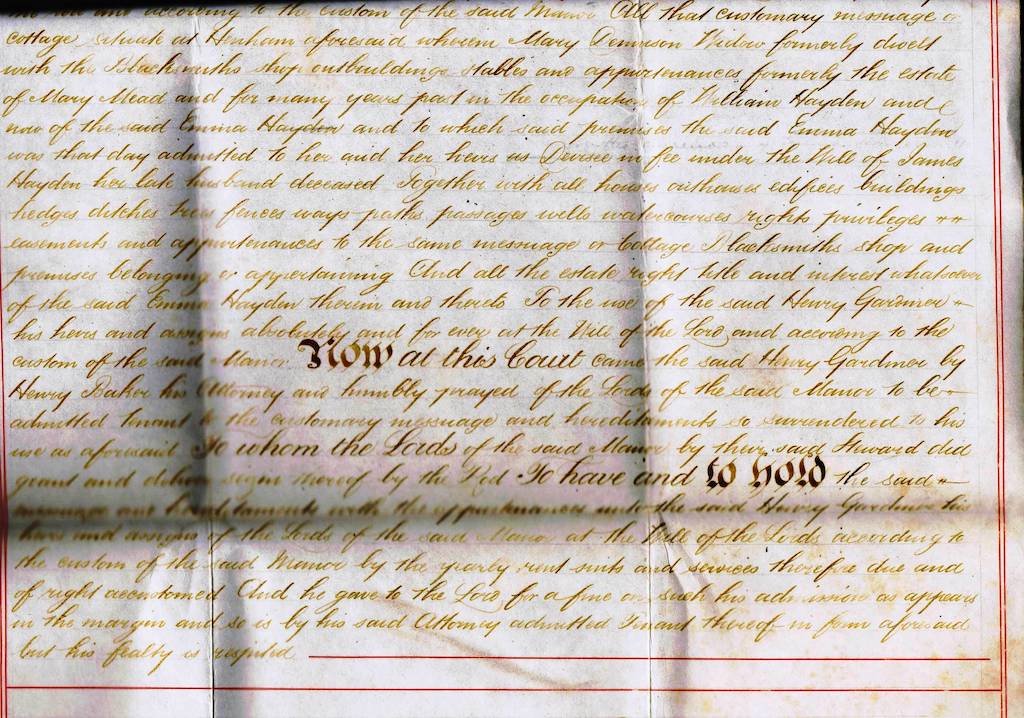 and according to the custom of the said Manor All that customary messuage or
cottage situate at Henham aforesaid wherein Mary Dennison Widow formerly dwelt
with the Blacksmiths shop outbuildings stables and appurtenances formerly the estate
of Mary Mead and for many years past in the occupation of William Hayden and
now of the said Emma Hayden and to which said premises the said Emma Hayden
was that day admitted to her and her heirs as Devisee in fee under the Will of James
Hayden her late husband deceased Together with all houses outhouses edifices buildings
hedges ditches trees fences ways paths passages wells watercourses rights privileges
easements and appurtenances to the same messuage or Cottage Blacksmiths shop and
premises belonging or appertaining And all the estate right title and interest whatsoever
of the said Emma Hayden therein and thereto To the use of the said Henry Gardiner
his heirs and assigns absolutely and for ever at the Will of the Lord and according to the
custom of the said Manor Now at this Court came the said Henry Gardiner by
Henry Baker his Attorney and humbly prayed of the Lords of the said Manor to be
admitted tenant to the customary messuage and hereditaments so surrendered to his
use as aforesaid To whom the Lords of the said Manor by their said Steward did
grant and deliver seizin thereof by the Rod To have and to hold the said
messuage and hereditaments with the appurtenances unto the said Henry Gardiner his
heirs and assigns of the Lords of the said Manor at the Will of the Lords according to
the custom of the said Manor by the yearly rent suits and services therefore due and
of right accustomed And he gave to the Lord for a fine on such his admission as appears
in the margin and so is by his said Attorney admitted Tenant thereof in form aforesaid
but his fealty is respited